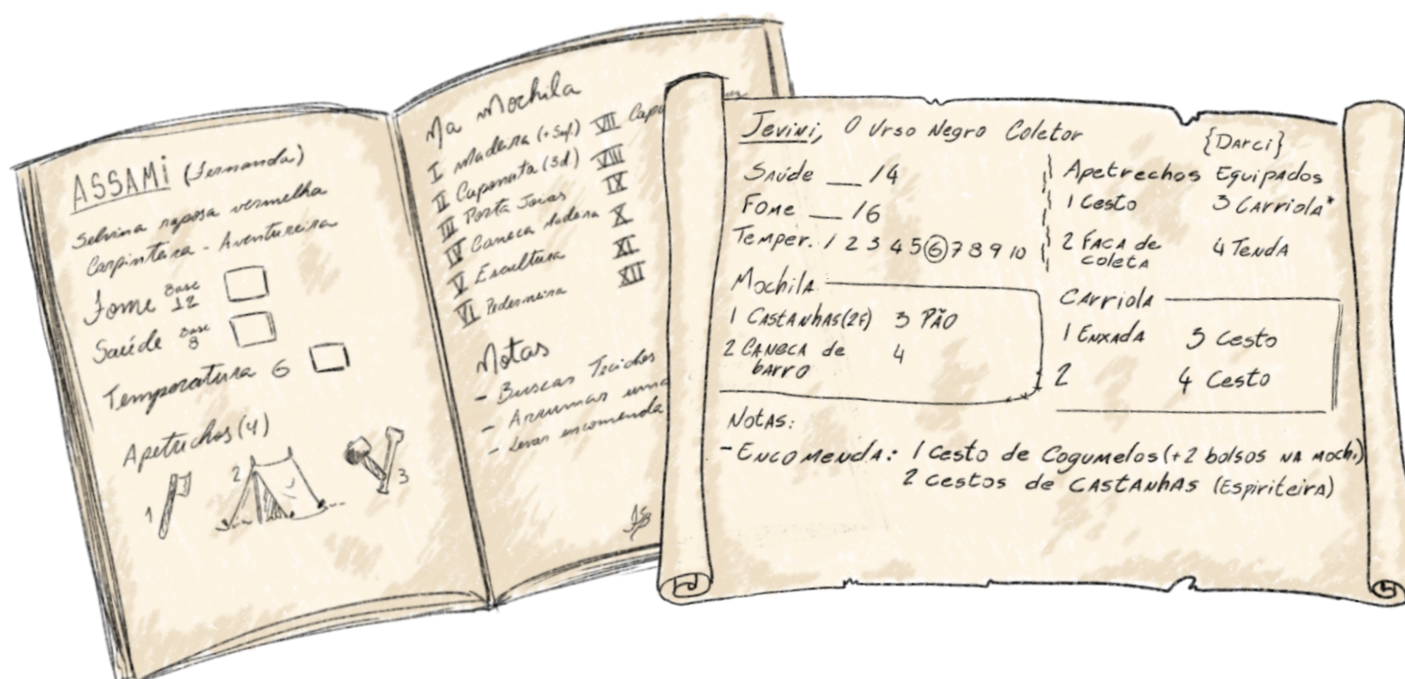 ASSAMI (Fernanda)
Selvina raposa vermelha
Carpinteira - Aventureira
Fome Base 12
Saúde Base 8
Temperatura 6
Apetrechos (4)
1
2
3
Na Mochila
I Madeira (+Sup.)
II Caponata (3d)
III Porta Joias
IV Caneca Madeira
V Escultura
VI Pederneira
VII Capo
VIII
IX
X
XI
XII
Notas
- Buscar Tecidos
- Arrumar uma
- Levar encomenda
Jevini, O Urso Negro Coletor {Darci}
Saúde __ /4
Fome __ /6
Temper. 1 2 3 4 5 6 7 8 9 10
Apetrechos Equipados
1 Cesto 3 Carriola*
2 Faca de coleta 4 Tenda
Mochila
1 Castanhas (2F) 3 Pão
2 Caneca de barro 4
Carriola
1 Enxada 3 Cesto
2 4 Cesto
Notas:
- Encomenda: 1 Cesto de Cogumelos (+2 bolsos na mochi)
2 cestos de castanhas (Espiriteira)